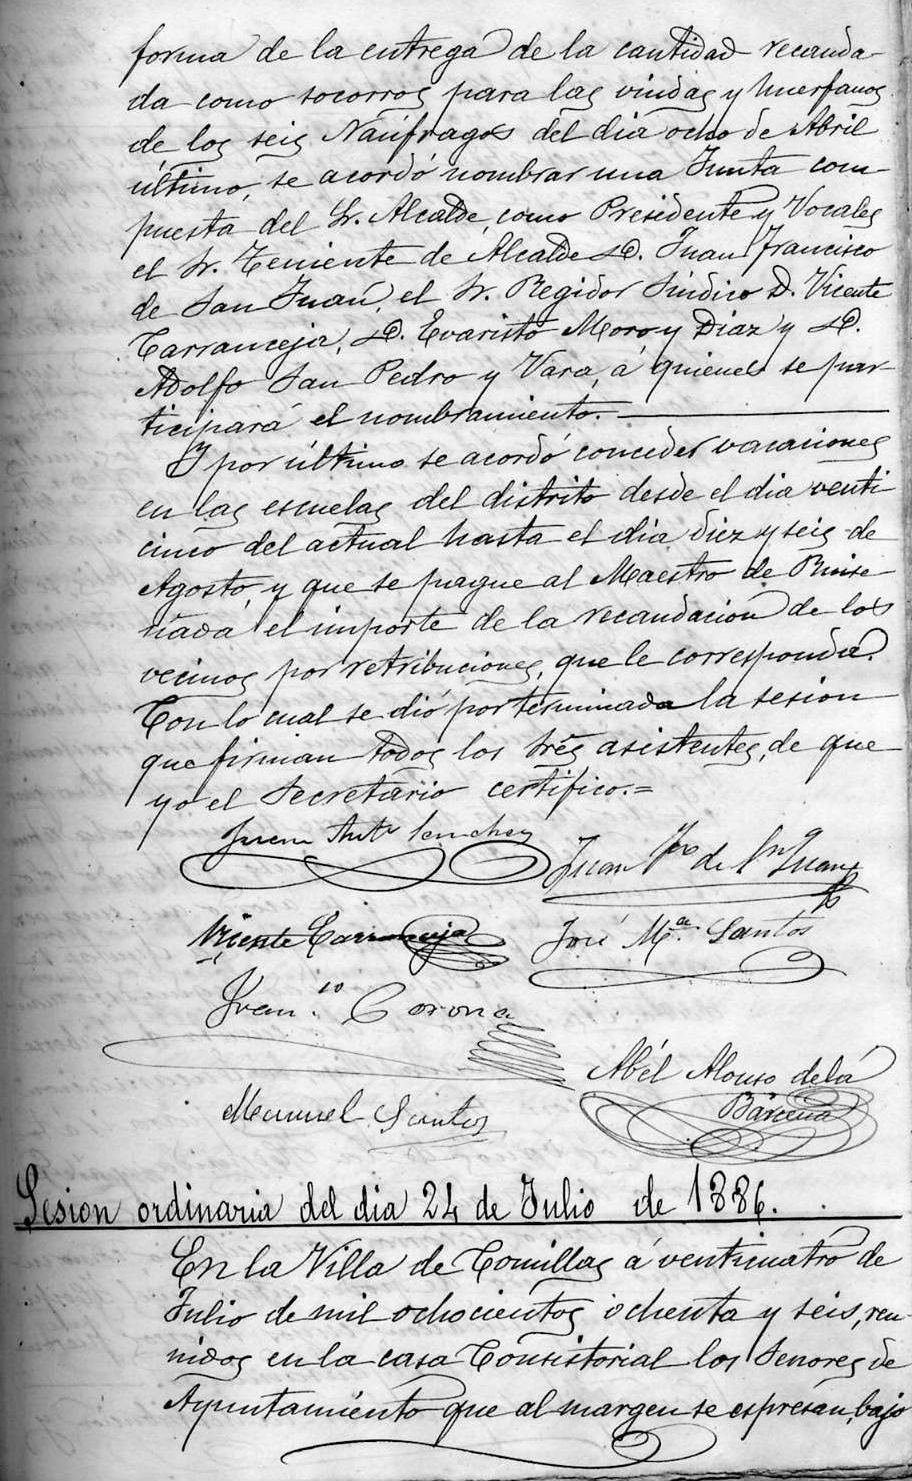 forma de la entrega de la cantidad recauda-
da como socorros para las viudas y huerfanos
de los seis Naúfragos del dia ocho de Abril
último, se acordó nombrar una Junta com-
puesta del Sr. Alcalde, como Presidente y Vocales
el Sr. Teniente de Alcalde D. Juan Francisco
de San Juan, el Sr. Regidor Sindico D. Vicente
Carranceja, D. Evaristo Moro y Diaz y D.
Adolfo San Pedro y Vara, á quienes se par-
ticipará el nombramiento.
Y por último se acordó conceder vacaciones
en las escuelas del distrito desde el dia venti
cinco del actual hasta el dia diez y seis de
Agosto, y que se pague al Maestro de Ruise-
ñada el importe de la recaudacion de los
vecinos por retribuciones, que le corresponda.
Con lo cual se dió por terminada la sesion
que firman todos los Srés asistentes, de que
yo el Secretario certifico.=
Juan Antº Sanchez
Juan Fco de Sn Juan
Vicente Carranceja
José Mª Santos
Franco Corona
Abél Alonso de la
Bárcena
Manuel Santos
Sesion ordinaria del dia 24 de Julio de 1886.
En la Villa de Comillas á venticuatro de
Julio de mil ochocientos ochenta y seis, reu-
nidos en la casa Consistorial los Senores de
Ayuntamiento que al margen se espresan, bajo